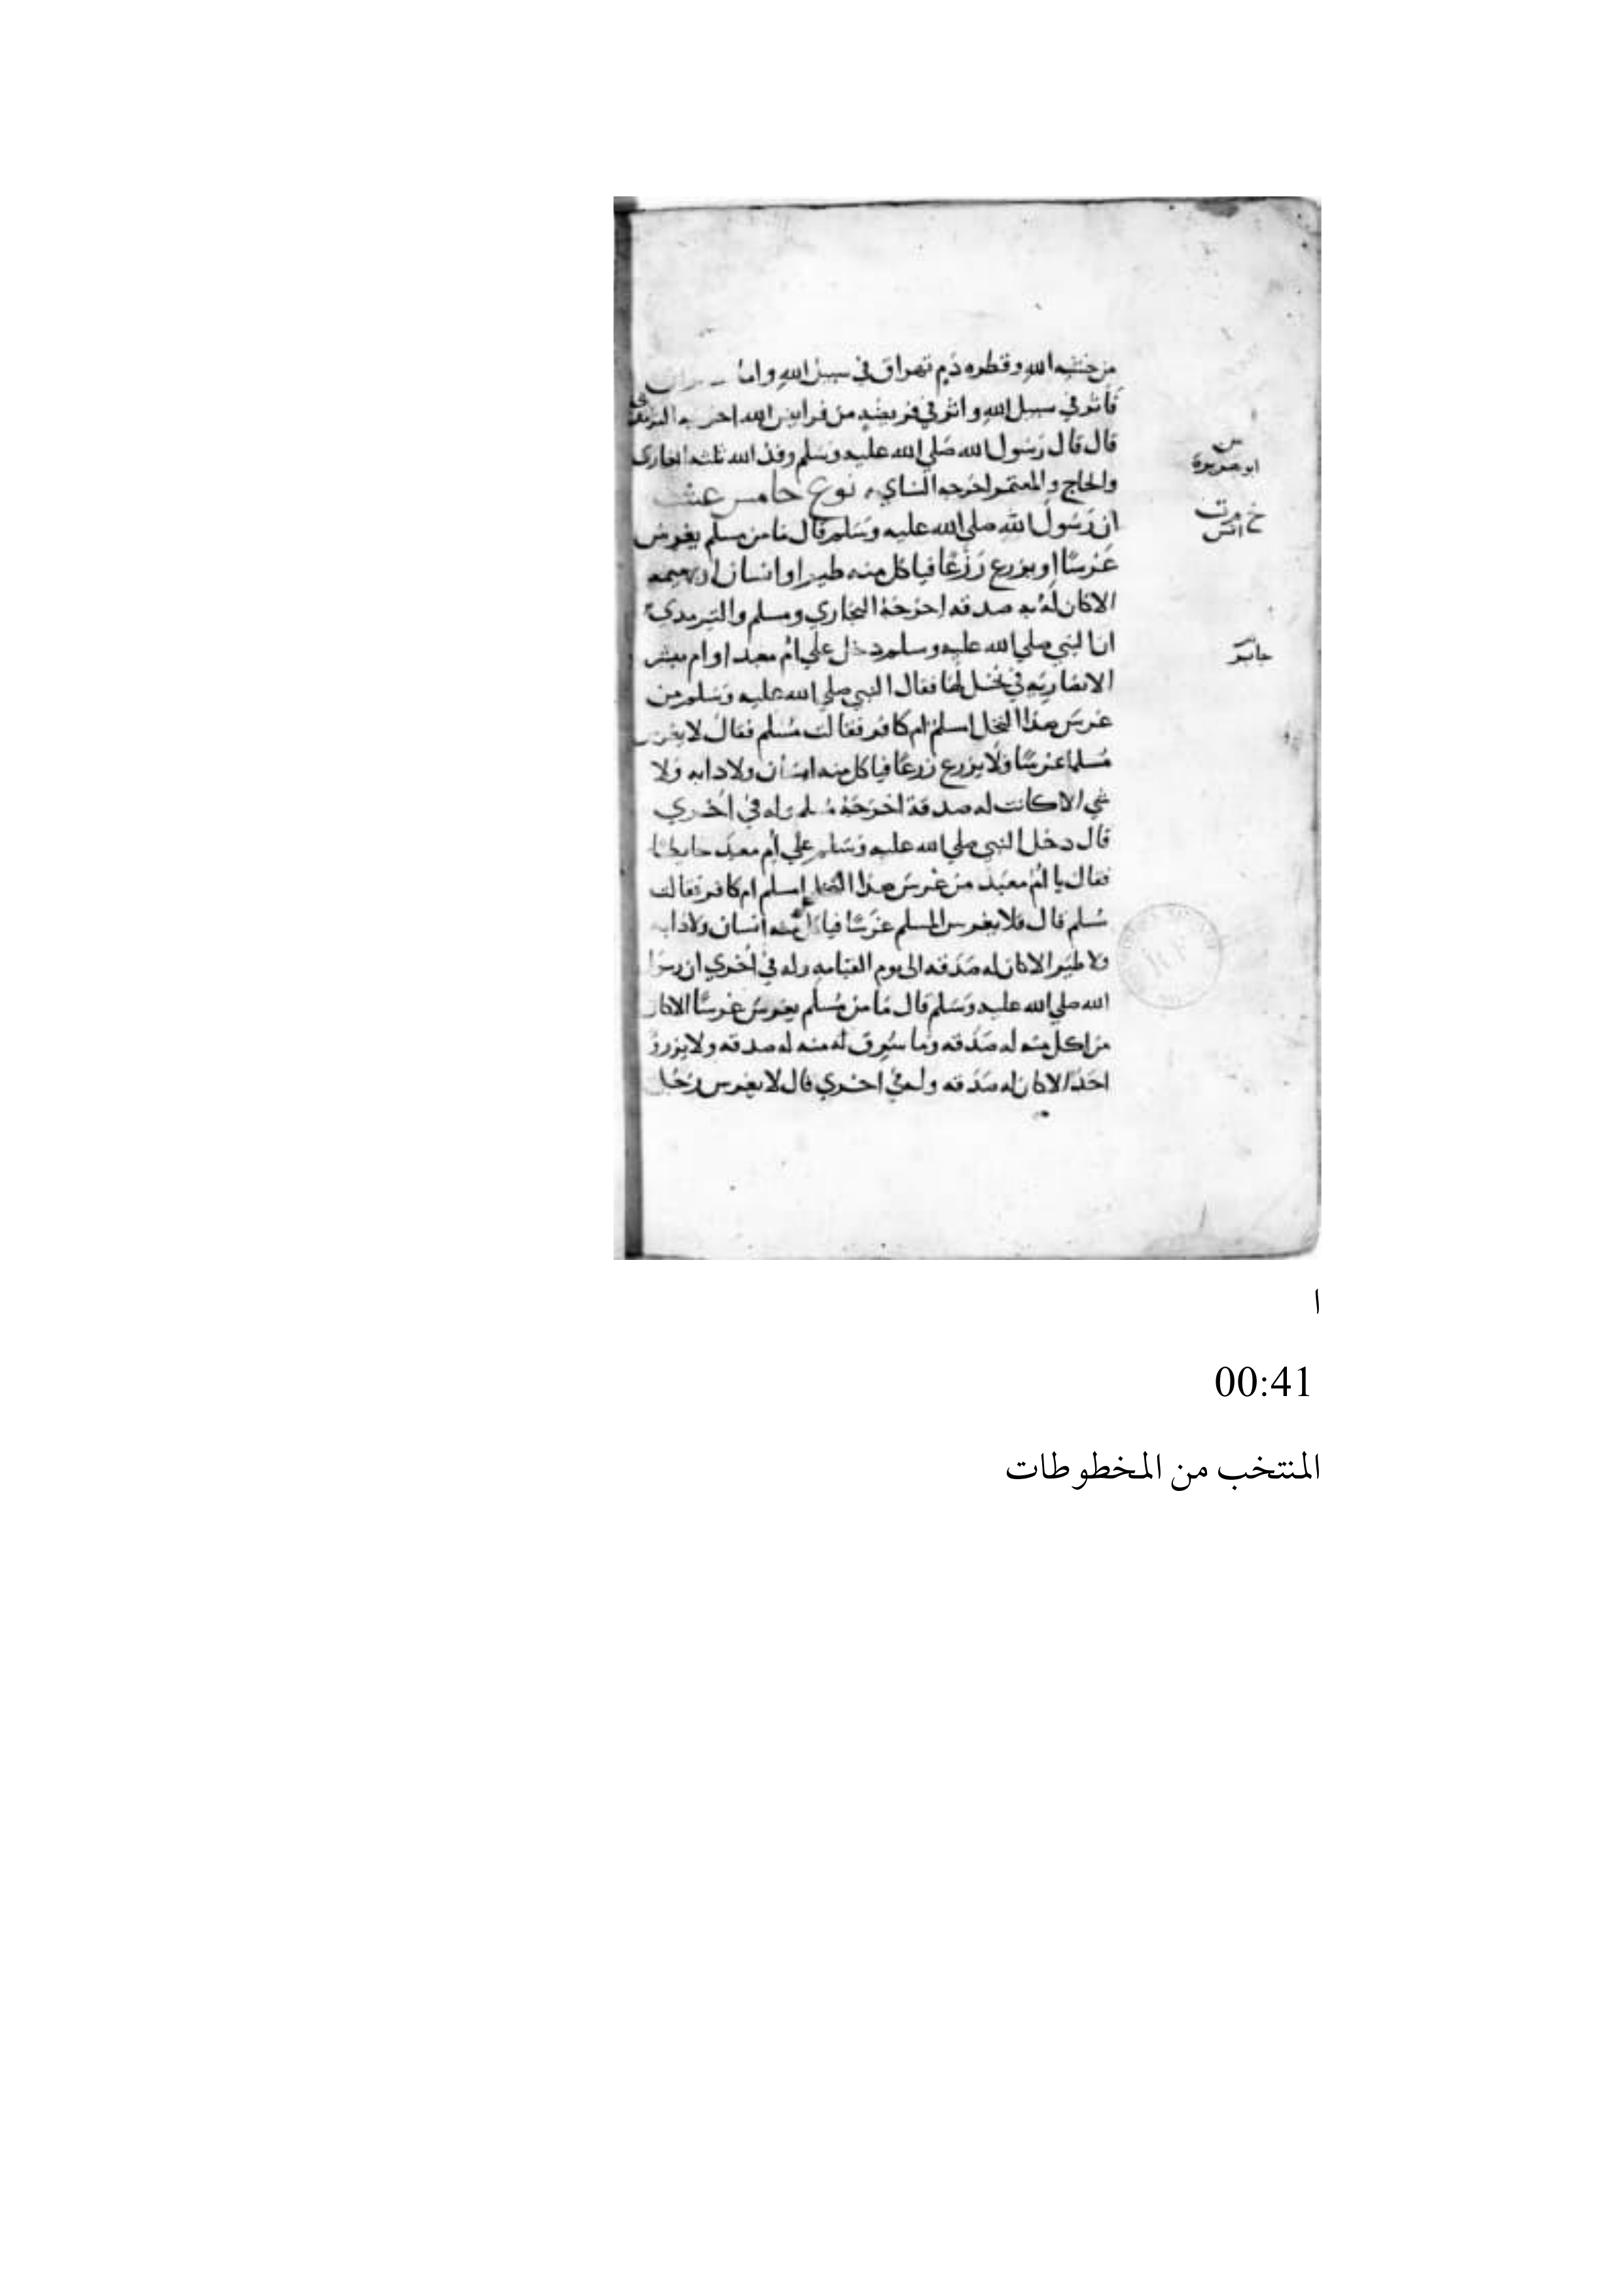 من خشيه الله وقطره دم تهراق في سبيل الله واما
فاثر في سبيل الله واثر في فريضه من فرايض الله اخرجه الترمذي
قال قال رسول الله صلي الله عليه وسلم وفد الله ثلثه الغازي
س
ابو هريرة
والحاج والمعتمر اخرجه النساي نوع خامس عشر
ان رسول الله صلي الله عليه وسلم قال ما من مسلم يغرس
خ م ت
انس
غرسا او يزرع زرعا فياكل منه طير او انسان او بهيمه
الا كان له به صدقه اخرجه البخاري ومسلم والترمذي
ان النبي صلي الله عليه وسلم دخل علي ام معبد او ام مبشر
جابر
الانصاريه في نخل لها فقال النبي صلي الله عليه وسلم من
غرس هذا النخل امسلم ام كافر فقالت مسلم فقال لا يغرس
مسلما غرسا ولا يزرع زرعا فياكل منه انسان ولا دابه ولا
شي الا كانت له صدقة اخرجه مسلم وله في اخري
قال دخل النبي صلي الله عليه وسلم علي ام معبد حايطا
فقال يا ام معبد من غرس هذا النخل امسلم ام كافر فقالت
مسلم قال فلا يغرس المسلم غرسا فياكل منه انسان ولا دابه
ولا طير الا كان له صدقه الى يوم القيامه وله في اخري ان رسول
الله صلي الله عليه وسلم قال ما من مسلم يغرس غرسا الا كان
من اكل منه له صدقه وما سرق له منه له صدقه ولا يزرؤ
احد الا كان له صدقه وله في اخري قال لا يغرس رجل
ا
00:41
المنتخب من المخطوطات